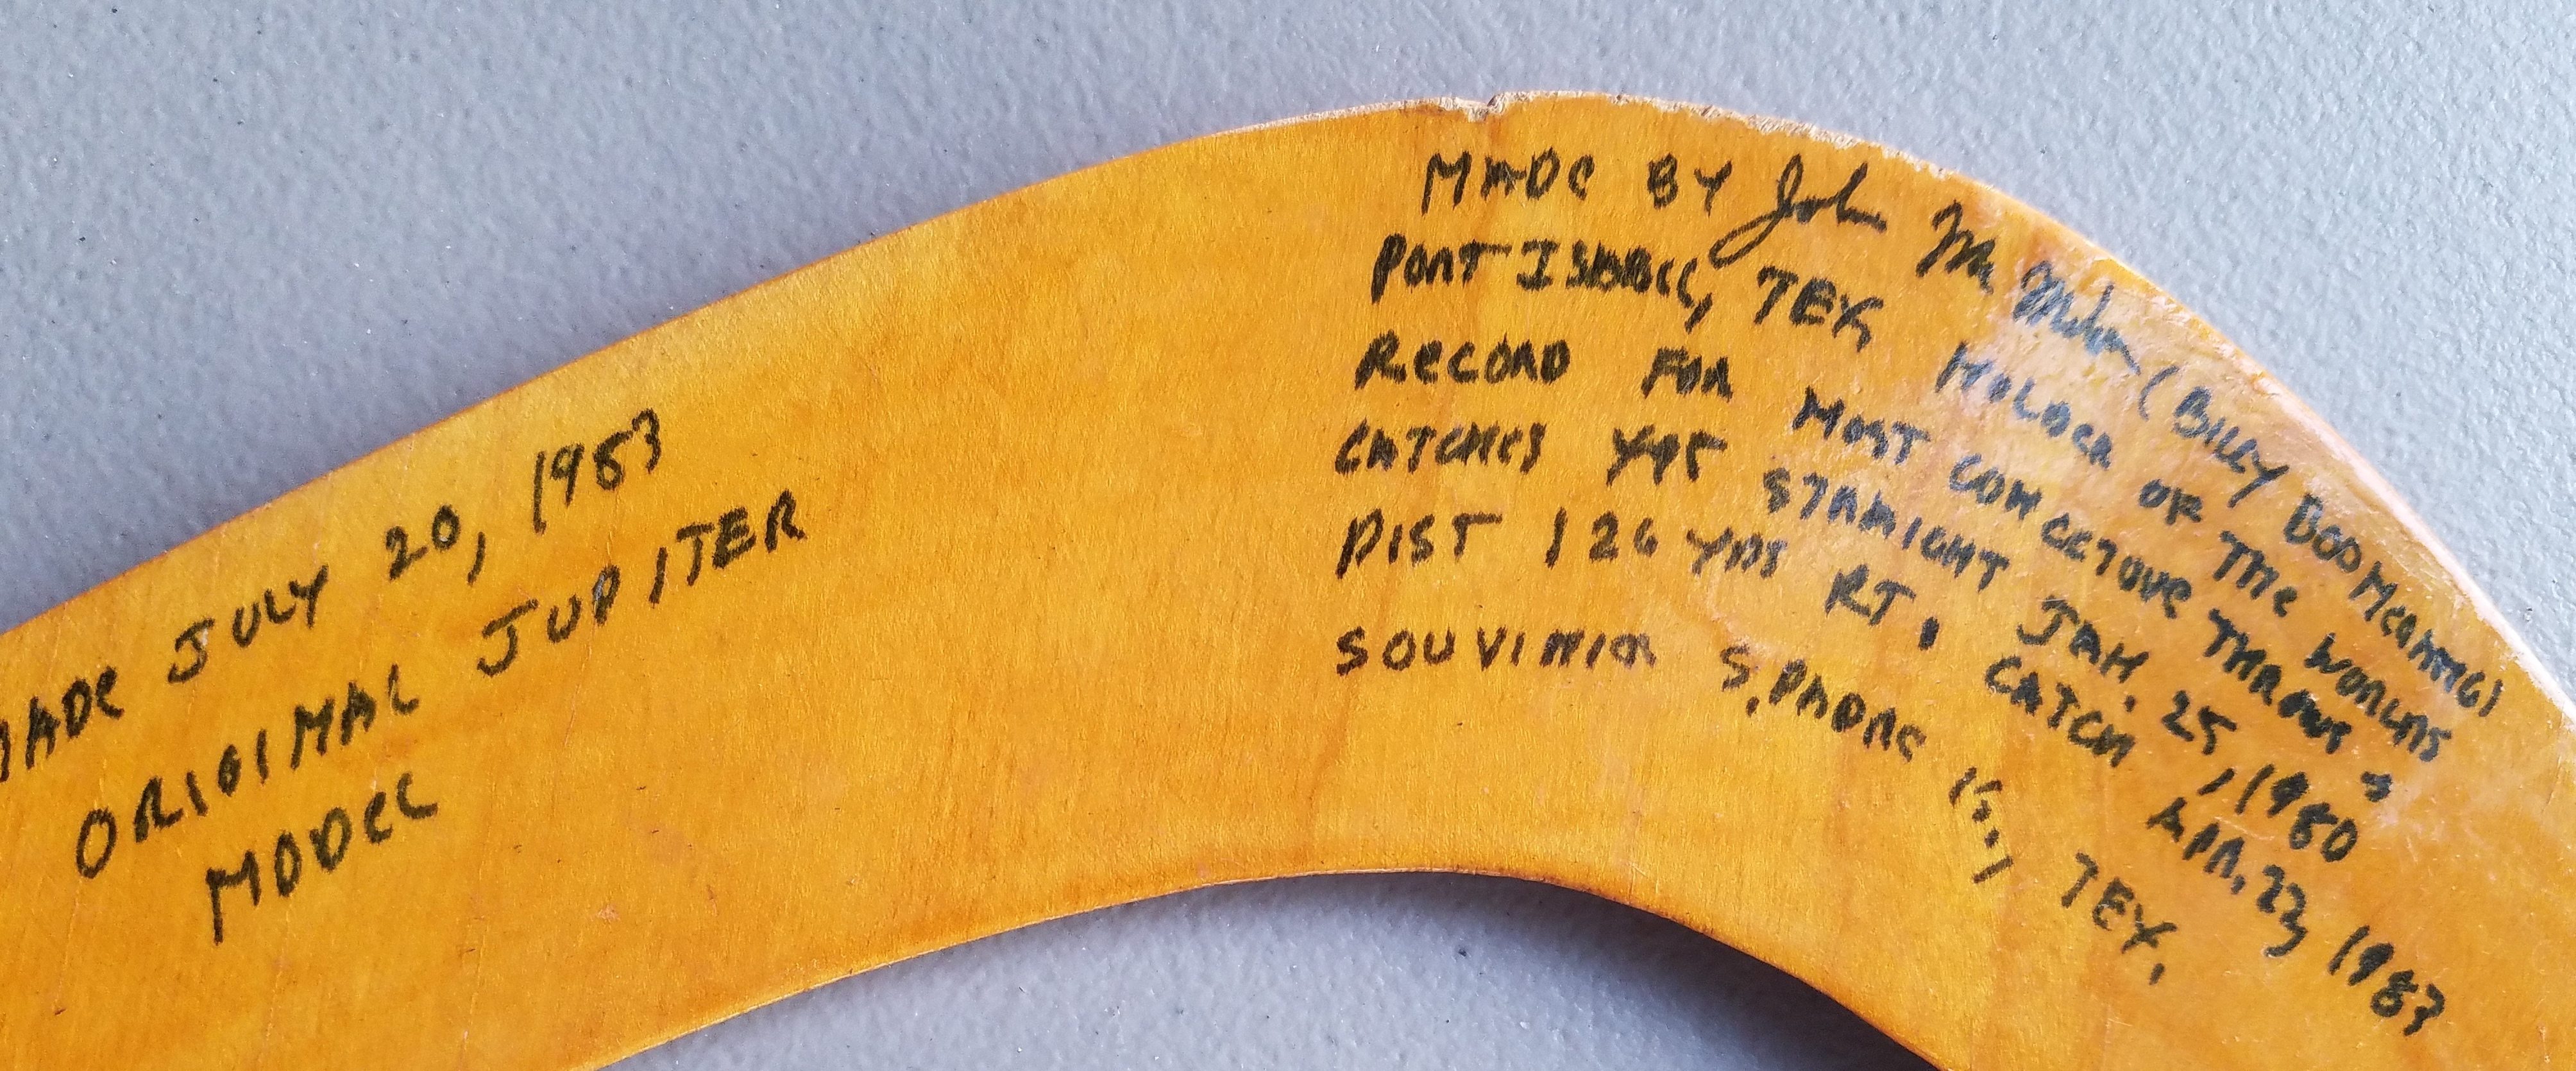 MADE JULY 20, 1983
ORIGINAL JUPITER
MODEL
MADE BY John Mc Mahon (BILLY BOOMERANG)
PORT ISABEL, TEX, HOLDER OF THE WORLDS
RECORD FOR MOST THROWS &
CATCHES 495 STRAIGHT JAN. 25, 1980
DIST 126 YDS RT. CATCH APR. 23, 1983
SOUVINIR S. PADRE IS., TEX.